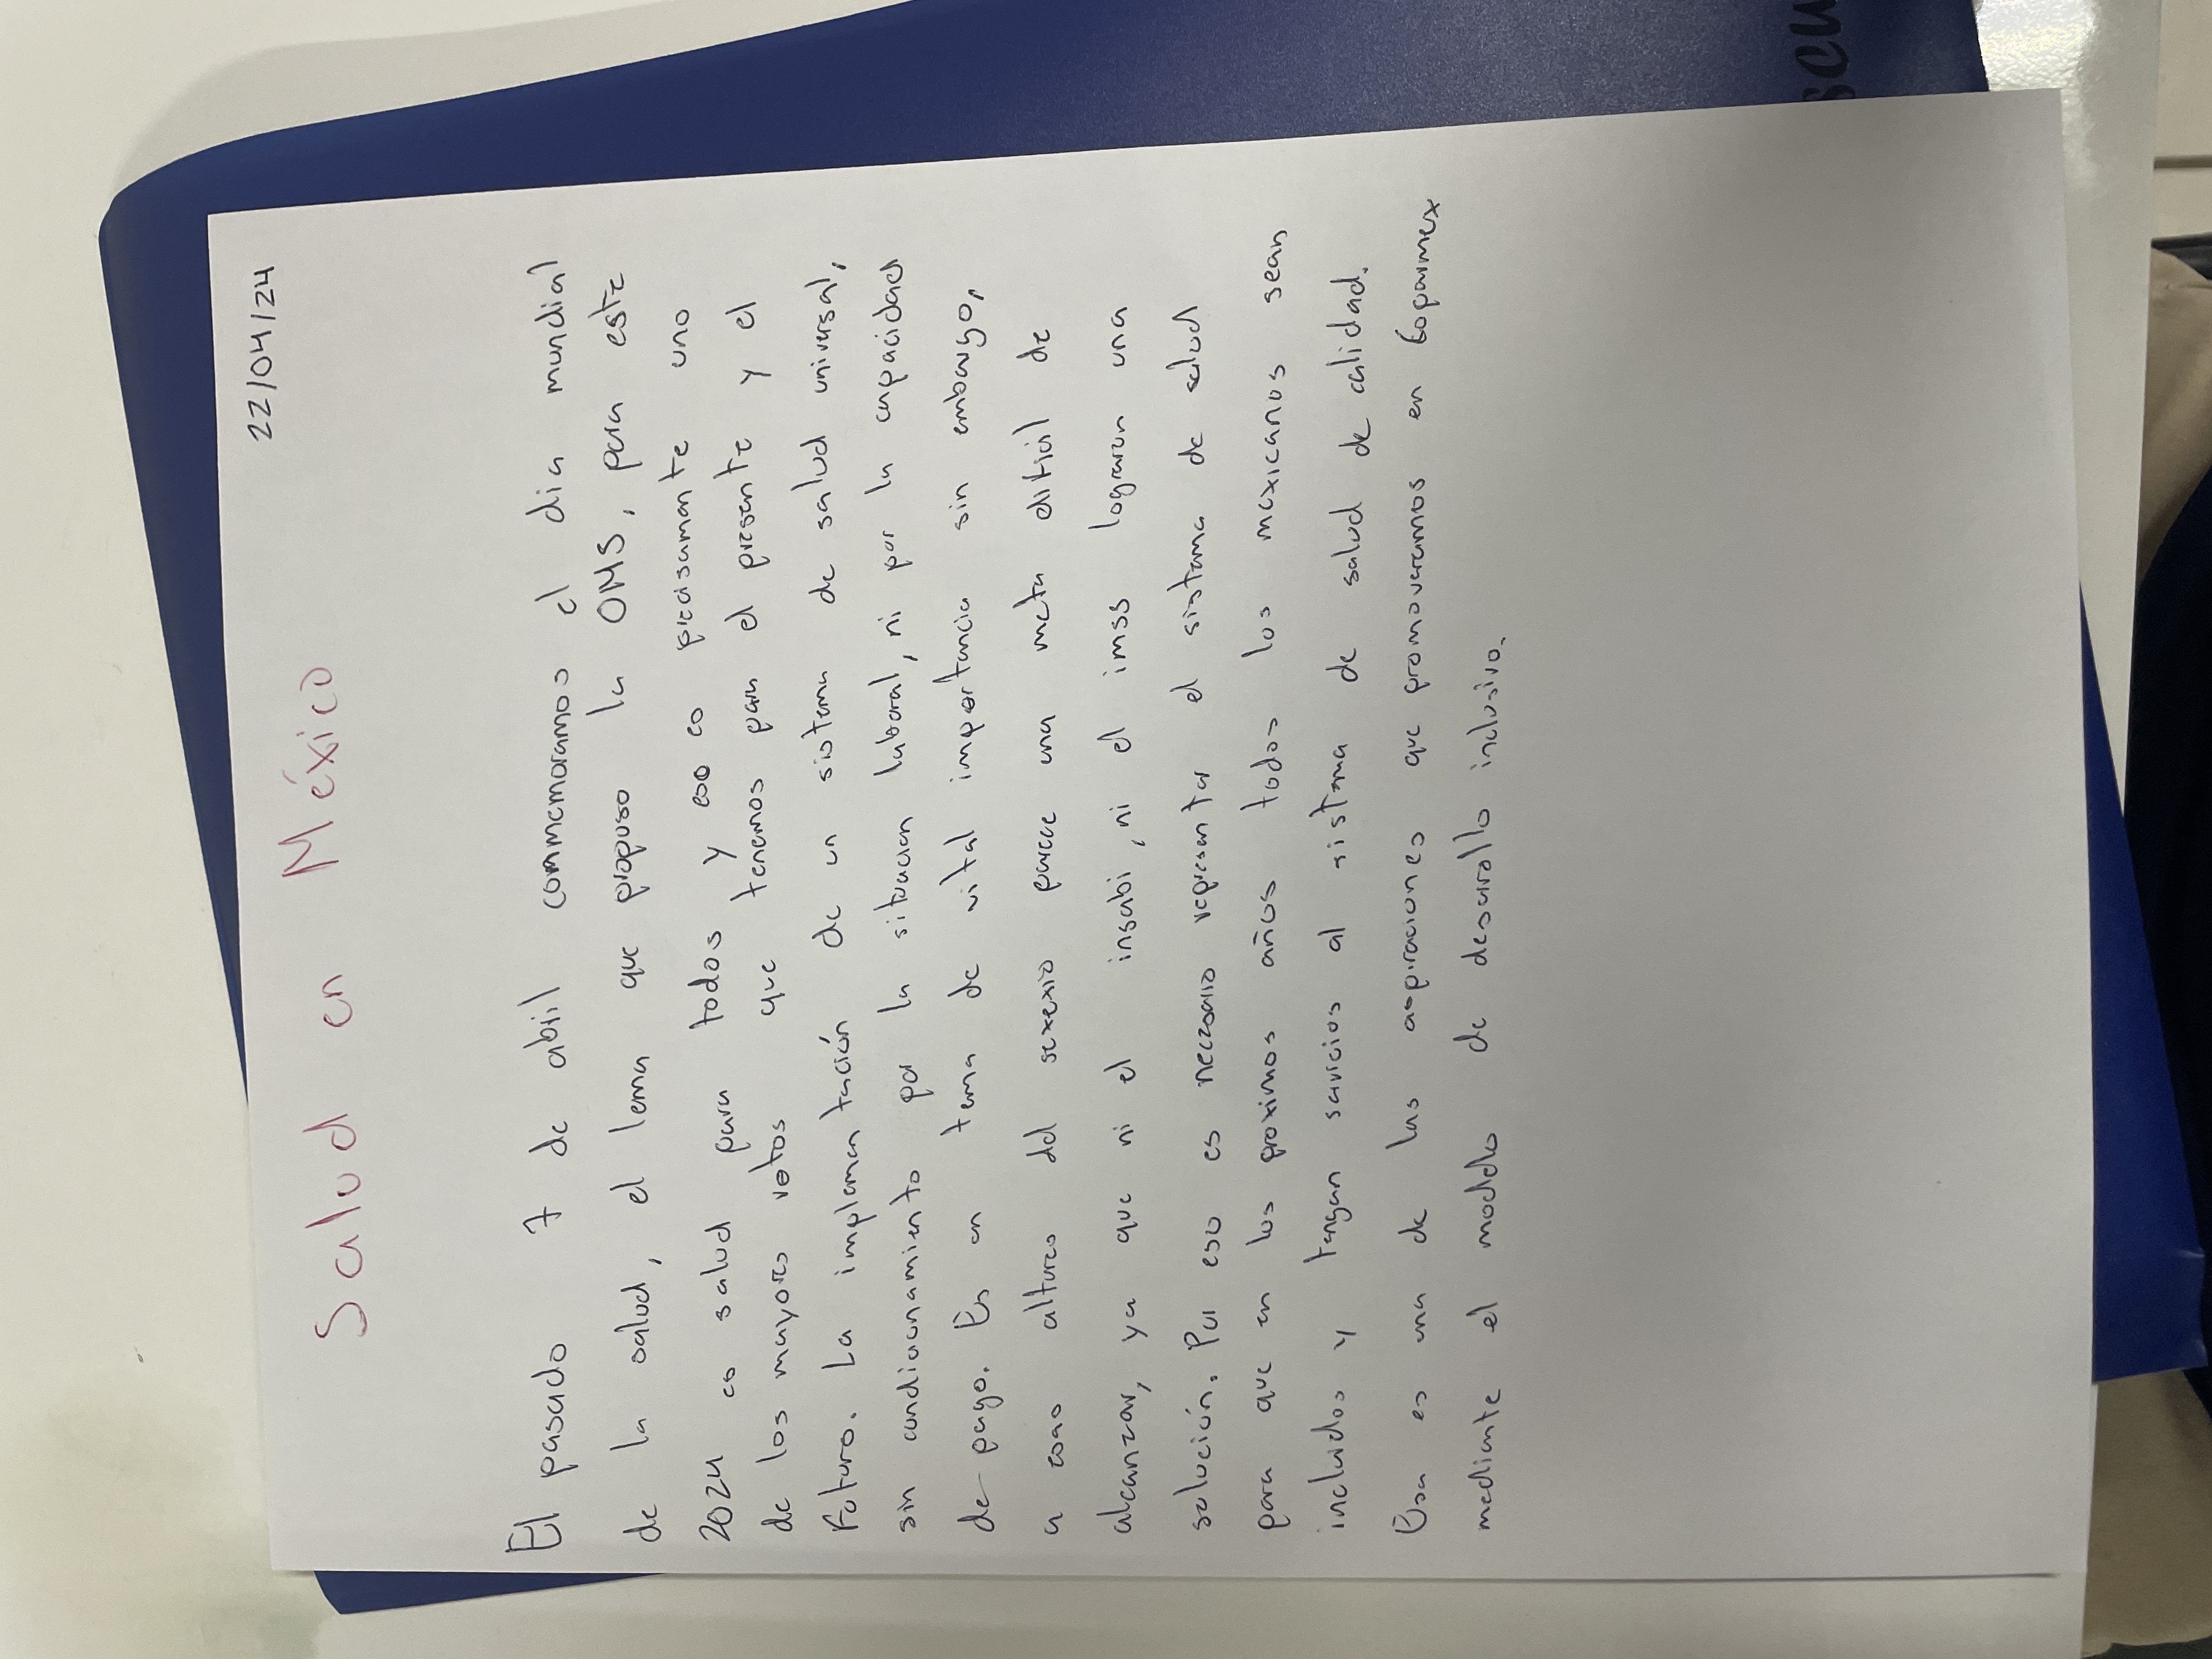 22/04/24
Salud en México
El pasado 7 de abril conmemoramos el dia mundial
de la salud, el lema que propuso la OMS, para este
2024 es salud para todos y eso es precisamente uno
de los mayores retos que tenemos para el presente y el
Futuro. La implementación de un sistema de salud universal,
sin condicionamiento por la situacion laboral, ni por la capacidad
de pago. Es un tema de vital importancia sin embargo,
a esas alturas del sexenio parece una meta dificil de
alcanzar, ya que ni el insabi, ni el imss lograron una
solución. Por eso es necesario representar el sistema de salud
para que en los proximos años todos los mexicanos sean
incluidos y tengan servicios al sistema de salud de calidad.
Esa es una de las aspiraciones que promoveramos en Coparmex
mediante el modelo de desarollo inclusivo.